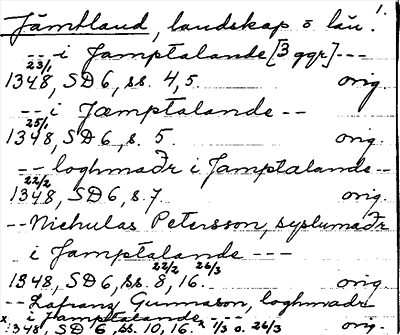 1.
Jämtland, landskap o län.
--- i Jamptalande [3 ggr] ---
23/1
1348, SD 6, ss. 4, 5. orig.
-- i Jæmptalande --
25/1
1348, SD 6, s. 5. orig.
-- loghmaðr i Jamptalande --
22/2
1348, SD 6, s. 7 orig.
-- Nichulas Petersson, syslumaðr
i Jamptalande ---
22/2 26/3
1348, SD 6, ss. 8, 16. orig.
-- Lafranz Gunnason, loghmadr
x i Jamptalande ----
1348, SD 6, ss. 10, 16. x 1/3 o. 26/3 orig.